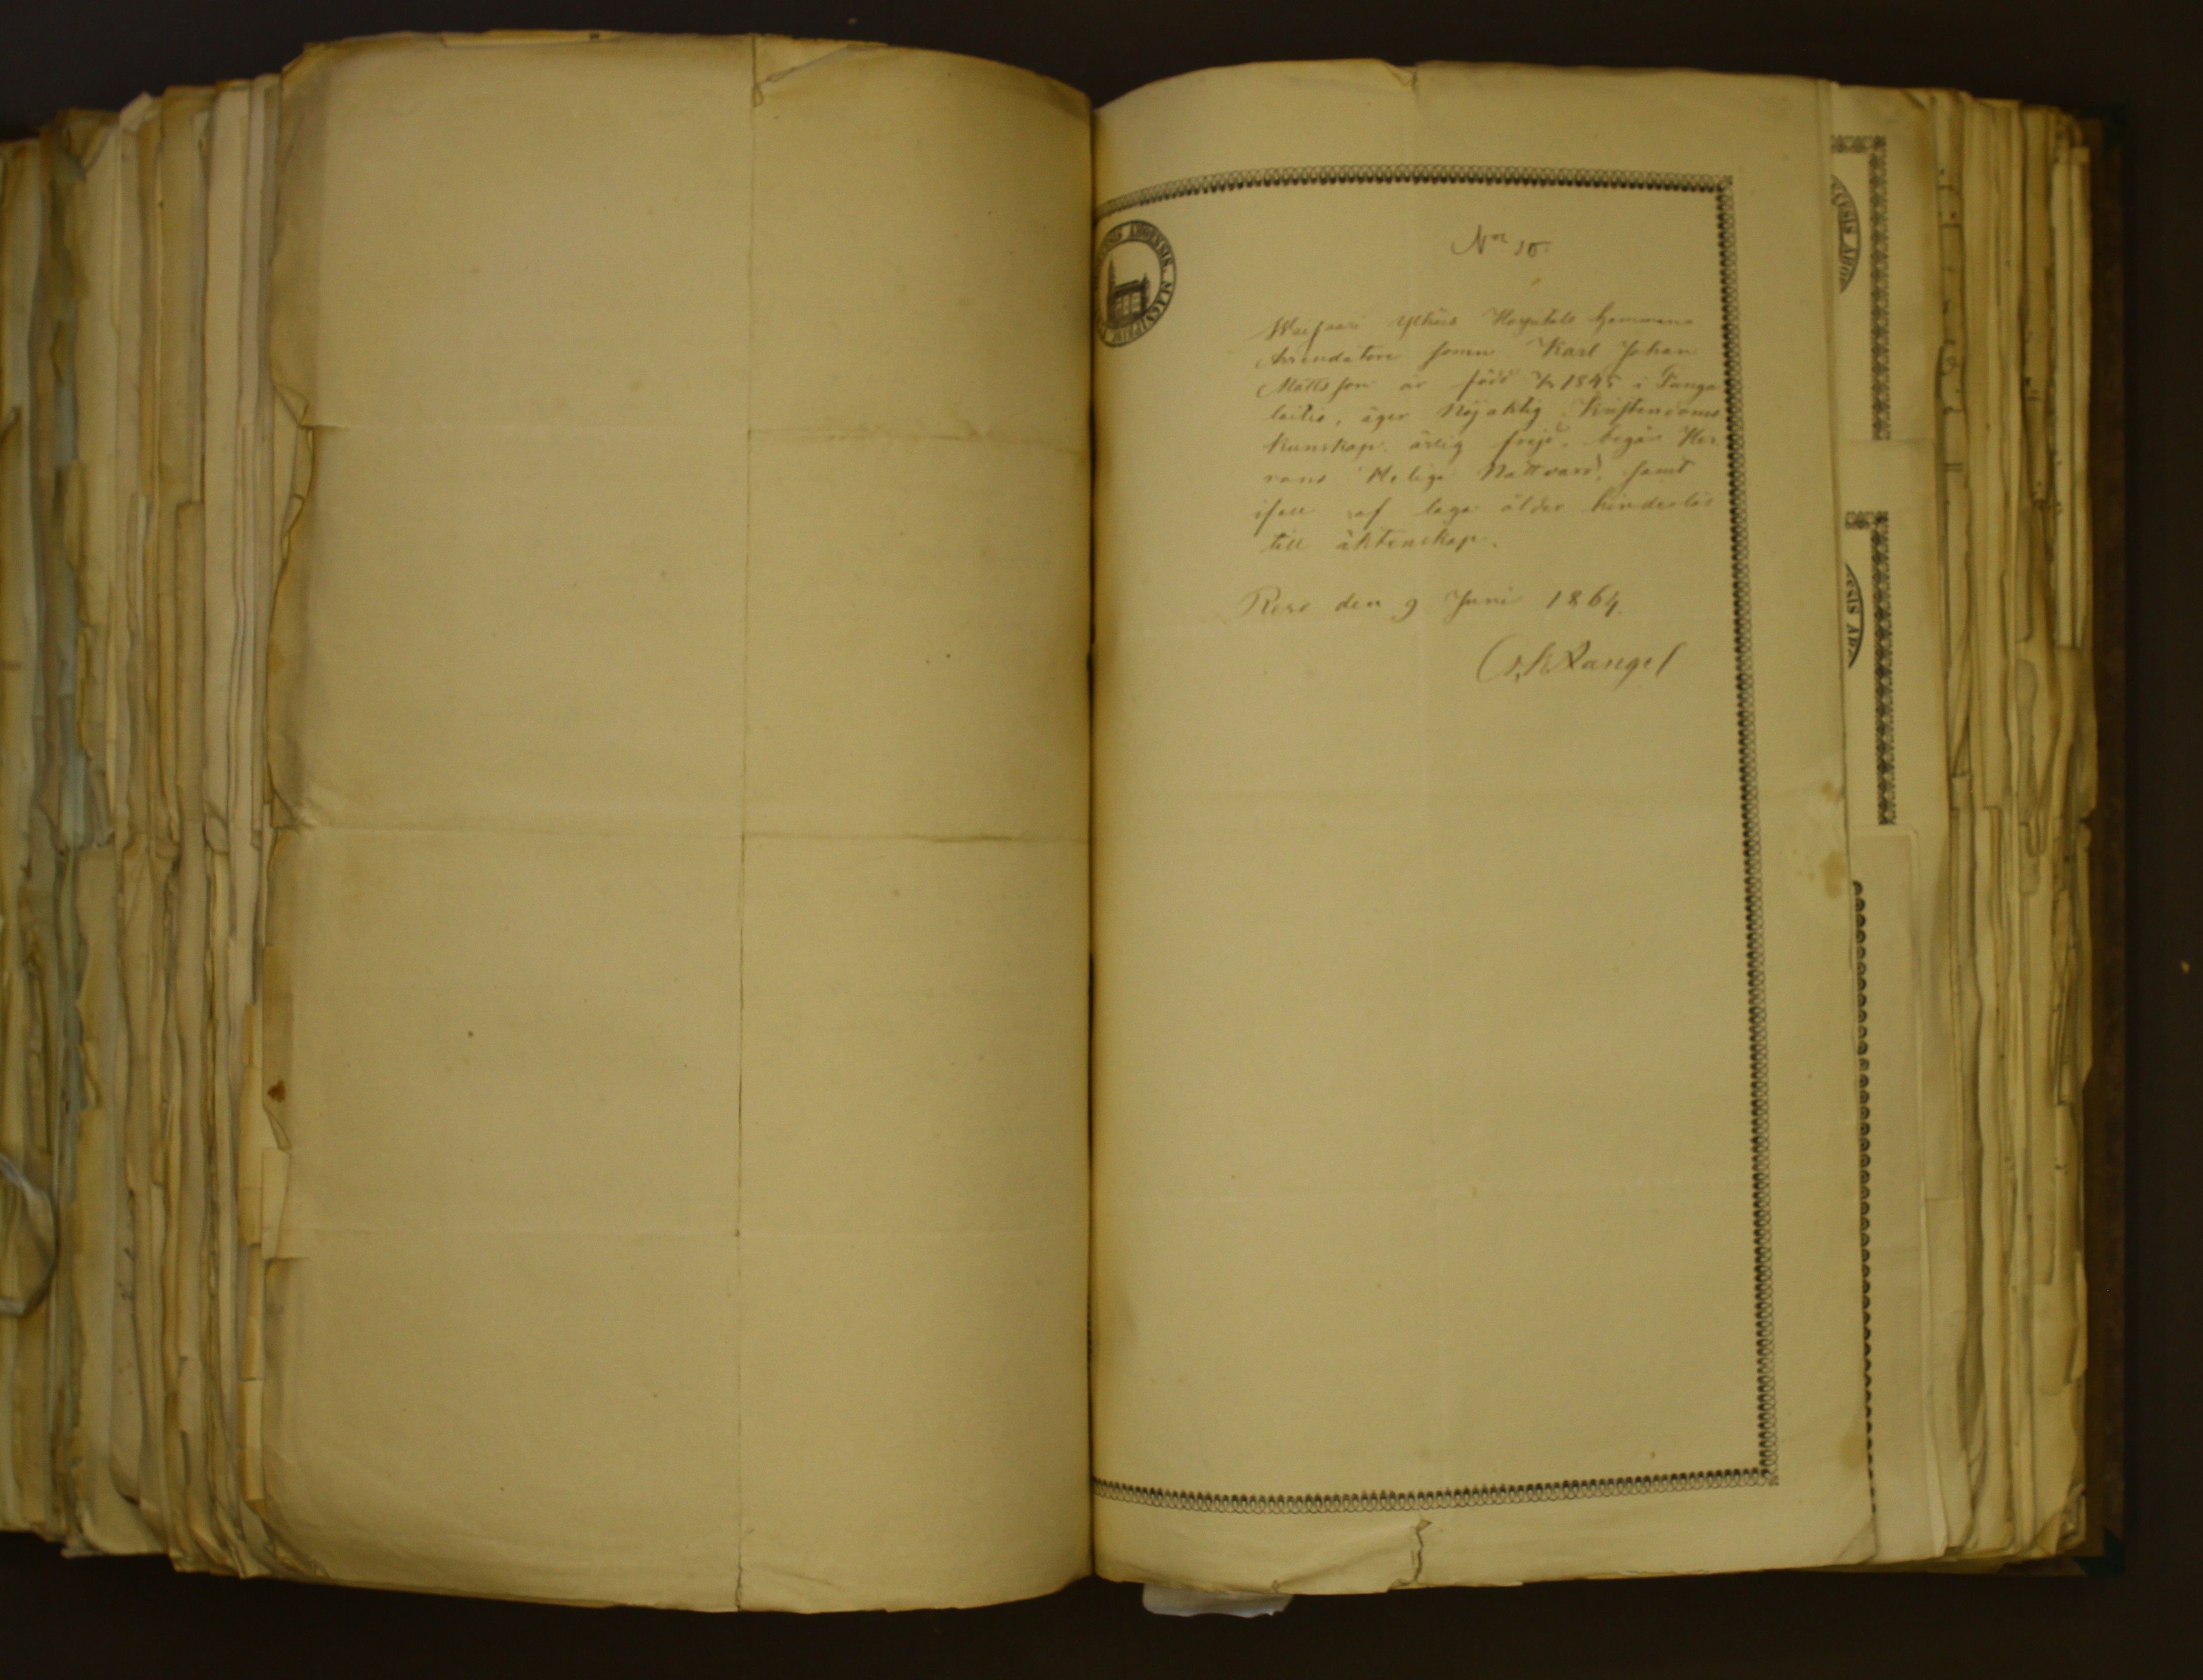 No 10.
Hospitals hemmans
Arrendatorn sonen Karl Johan
Mattsson är född 1845 i Panga
laitio, äger Nöjaktig Kristendoms
kunskap, ärlig frejd, begår Her-
rans Heliga Nattvard, samt
ifall af laga ålder hinderlös
till äktenskap.
Reso den 9 Juni 1864.